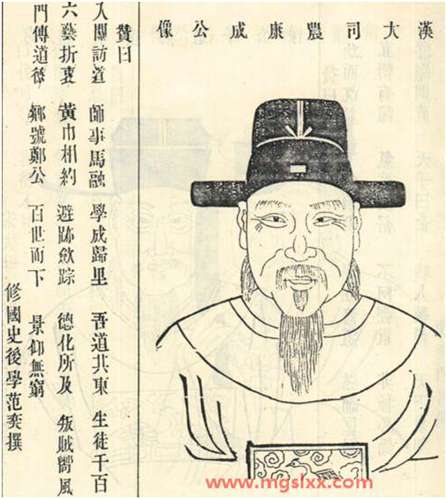 漢大司農康成公像
贊曰
入關訪道 師事馬融 學成歸里 吾道共東 生徒千百
六藝折衷 黃巾相約 避跡斂踪 德化所及 叛賊嚮風
門傳道德 鄉號鄭公 百世而下 景仰無窮
修國史後學范奕撰
www.mgslxx.com